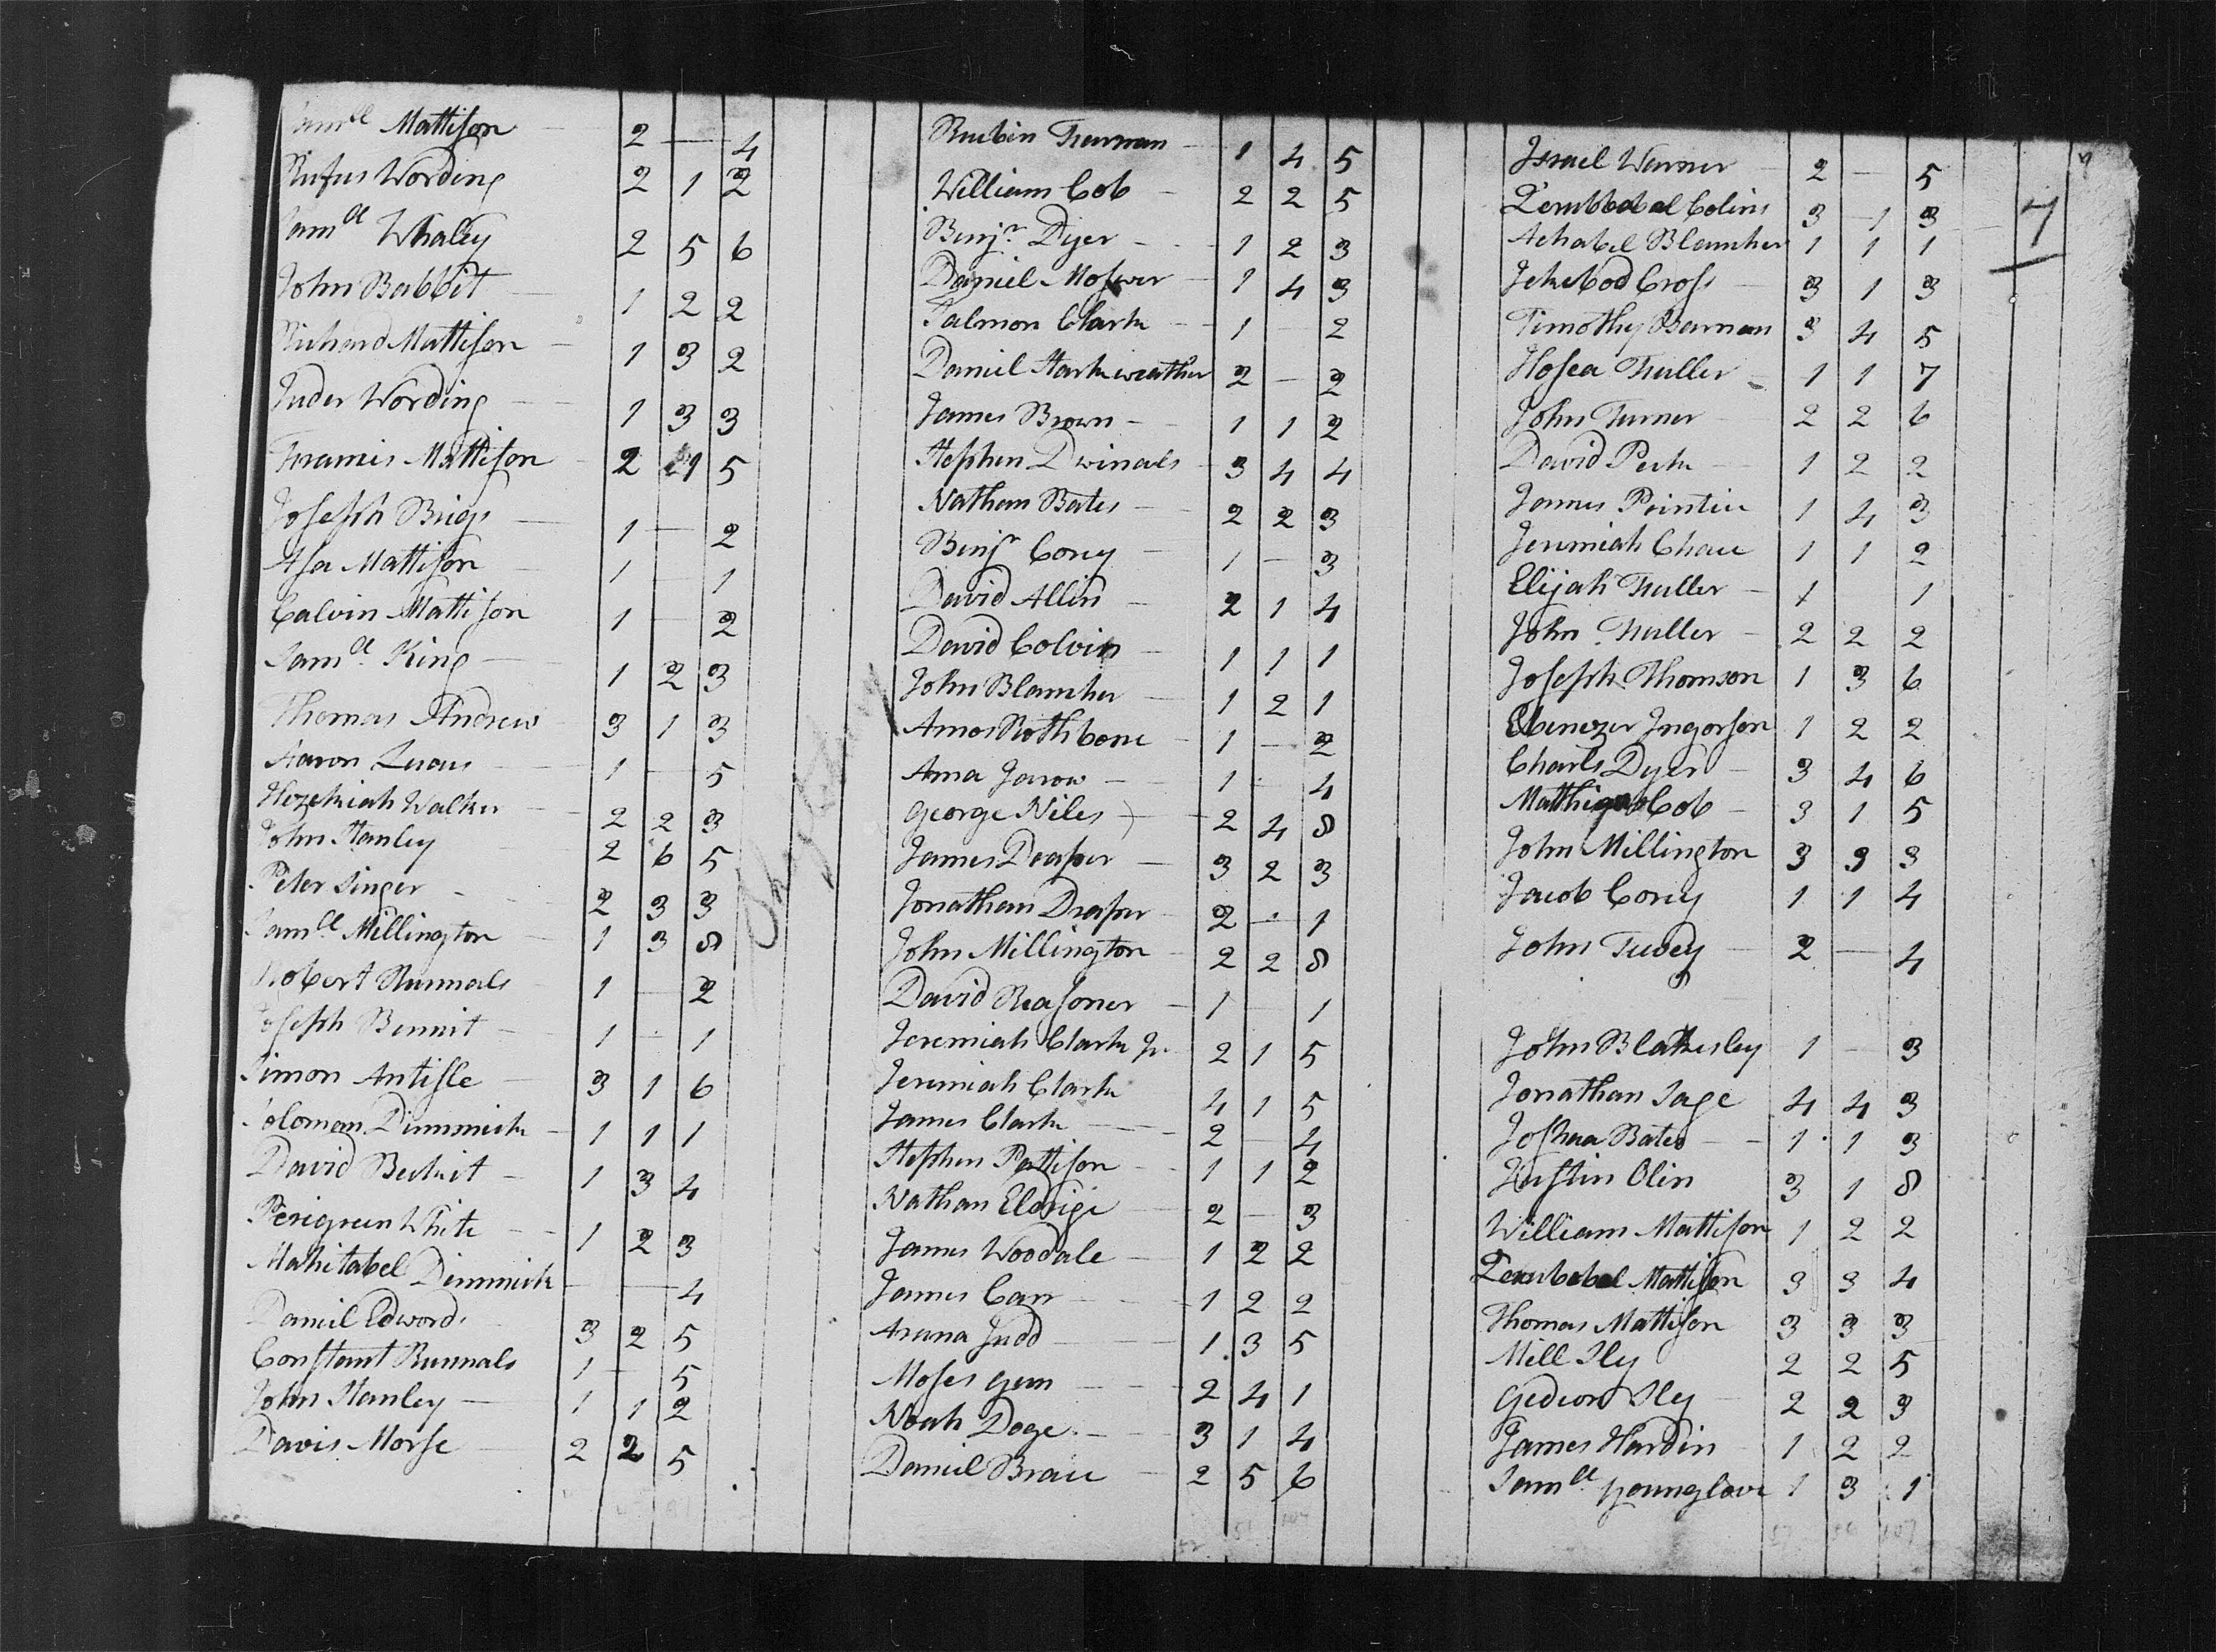 Samll Mattison — 2 — 4
Rufus Wording 2 1 2
Samll Whaley 2 5 6
John Babbit — 1 2 2
Richard Mattison — 1 3 2
Juder Wording — 1 3 3
Francis Mattison 2 1 5
Joseph Brigs — 1 — 2
Asa Mattison — 1 — 1
Calvin Mattison 1 — 2
Samll King — 1 2 3
Thomas Andrew 3 1 3
Aaron Lucas — 1 — 5
Hezekiah Walker — 2 2 3
John Stanley — 2 6 5
Peter Singer - 2 3 3
Samll Millington — 1 3 8
Robert Runnals 1 — 2
Joseph Bennit — 1 - 1
Simon Antisle — 3 1 6
Soloman Dimmick — 1 1 1
David Becknit — 1 3 4
Perigreen White — 1 2 3
Mahitabel Dimmick — — 4
Daniel Edwords — 3 2 5
Constant Runnals 1 — 5
John Stanley — 1 1 2
Davis Morse — 2 2 5
Reubin Freeman — 1 4 5
William Cob — 2 2 5
Benjn Dyer — 1 2 3
Daniel Mosher 1 4 3
Salmon Clark — 1 — 2
Daniel Starkweather 2 — 2
James Brown — 1 1 2
Stephen Dwinals — 3 4 4
Nathan Bates — 2 2 3
Benjn Corey — 1 — 3
David Allin — 2 1 4
David Colvin 1 1 1
John Blancher — 1 2 1
Amos Rothbone — 1 — 2
Ama — 1 - 4
George Niles — 2 4 8
James Draper — 3 2 3
Jonathan Draper 2 - 1
John Millington 2 2 8
David Reasoner — 1 — 1
Jeremiah Clark Jr. 2 1 5
Jeremiah Clark 4 1 5
James Clark — 2 — 4
Stephen Pattison — 1 1 2
Nathan Eldrige 2 — 3
James Woodale — 1 2 2
James Carr — 1 2 2
Asuna Judd — 1 3 5
Moses Gun — 2 4 1
Noah Doge — 3 1 4
Daniel Brace — 2 5 6
Israel Warner — 2 — 5
Zerubbabal Colins 3 1 3
7
Achabel Blancher 1 1 1
Jekebod Cross 3 1 3
Timothy Barnam 3 4 5
Hosea Fuller — 1 1 7
John Turner 2 2 6
David Peck — 1 2 2
James Pointin 1 4 3
Jeremiah Chace 1 1 2
Elijah Fuller — 1 1
John Fuller — 2 2 2
Joseph Thomson 1 3 6
Ebenezer Ingorson 1 2 2
Charls Dyer — 3 4 6
Matthias Cob — 3 1 5
John Millington 3 3 3
Jacob Corey 1 1 4
John Tuvey — 2 — 4
John Blakesley 1 — 3
Jonathan Sage 4 4 3
Joshua Bates — 1 1 3
Justin Olin 3 1 8
William Mattison 1 2 2
Zerubabal Mattison 3 3 4
Thomas Mattison 3 3 3
Mill Sly 2 2 5
Gedeon Sly 2 2 3
James Hardin 1 2 2
Samll Younglove 1 3 1